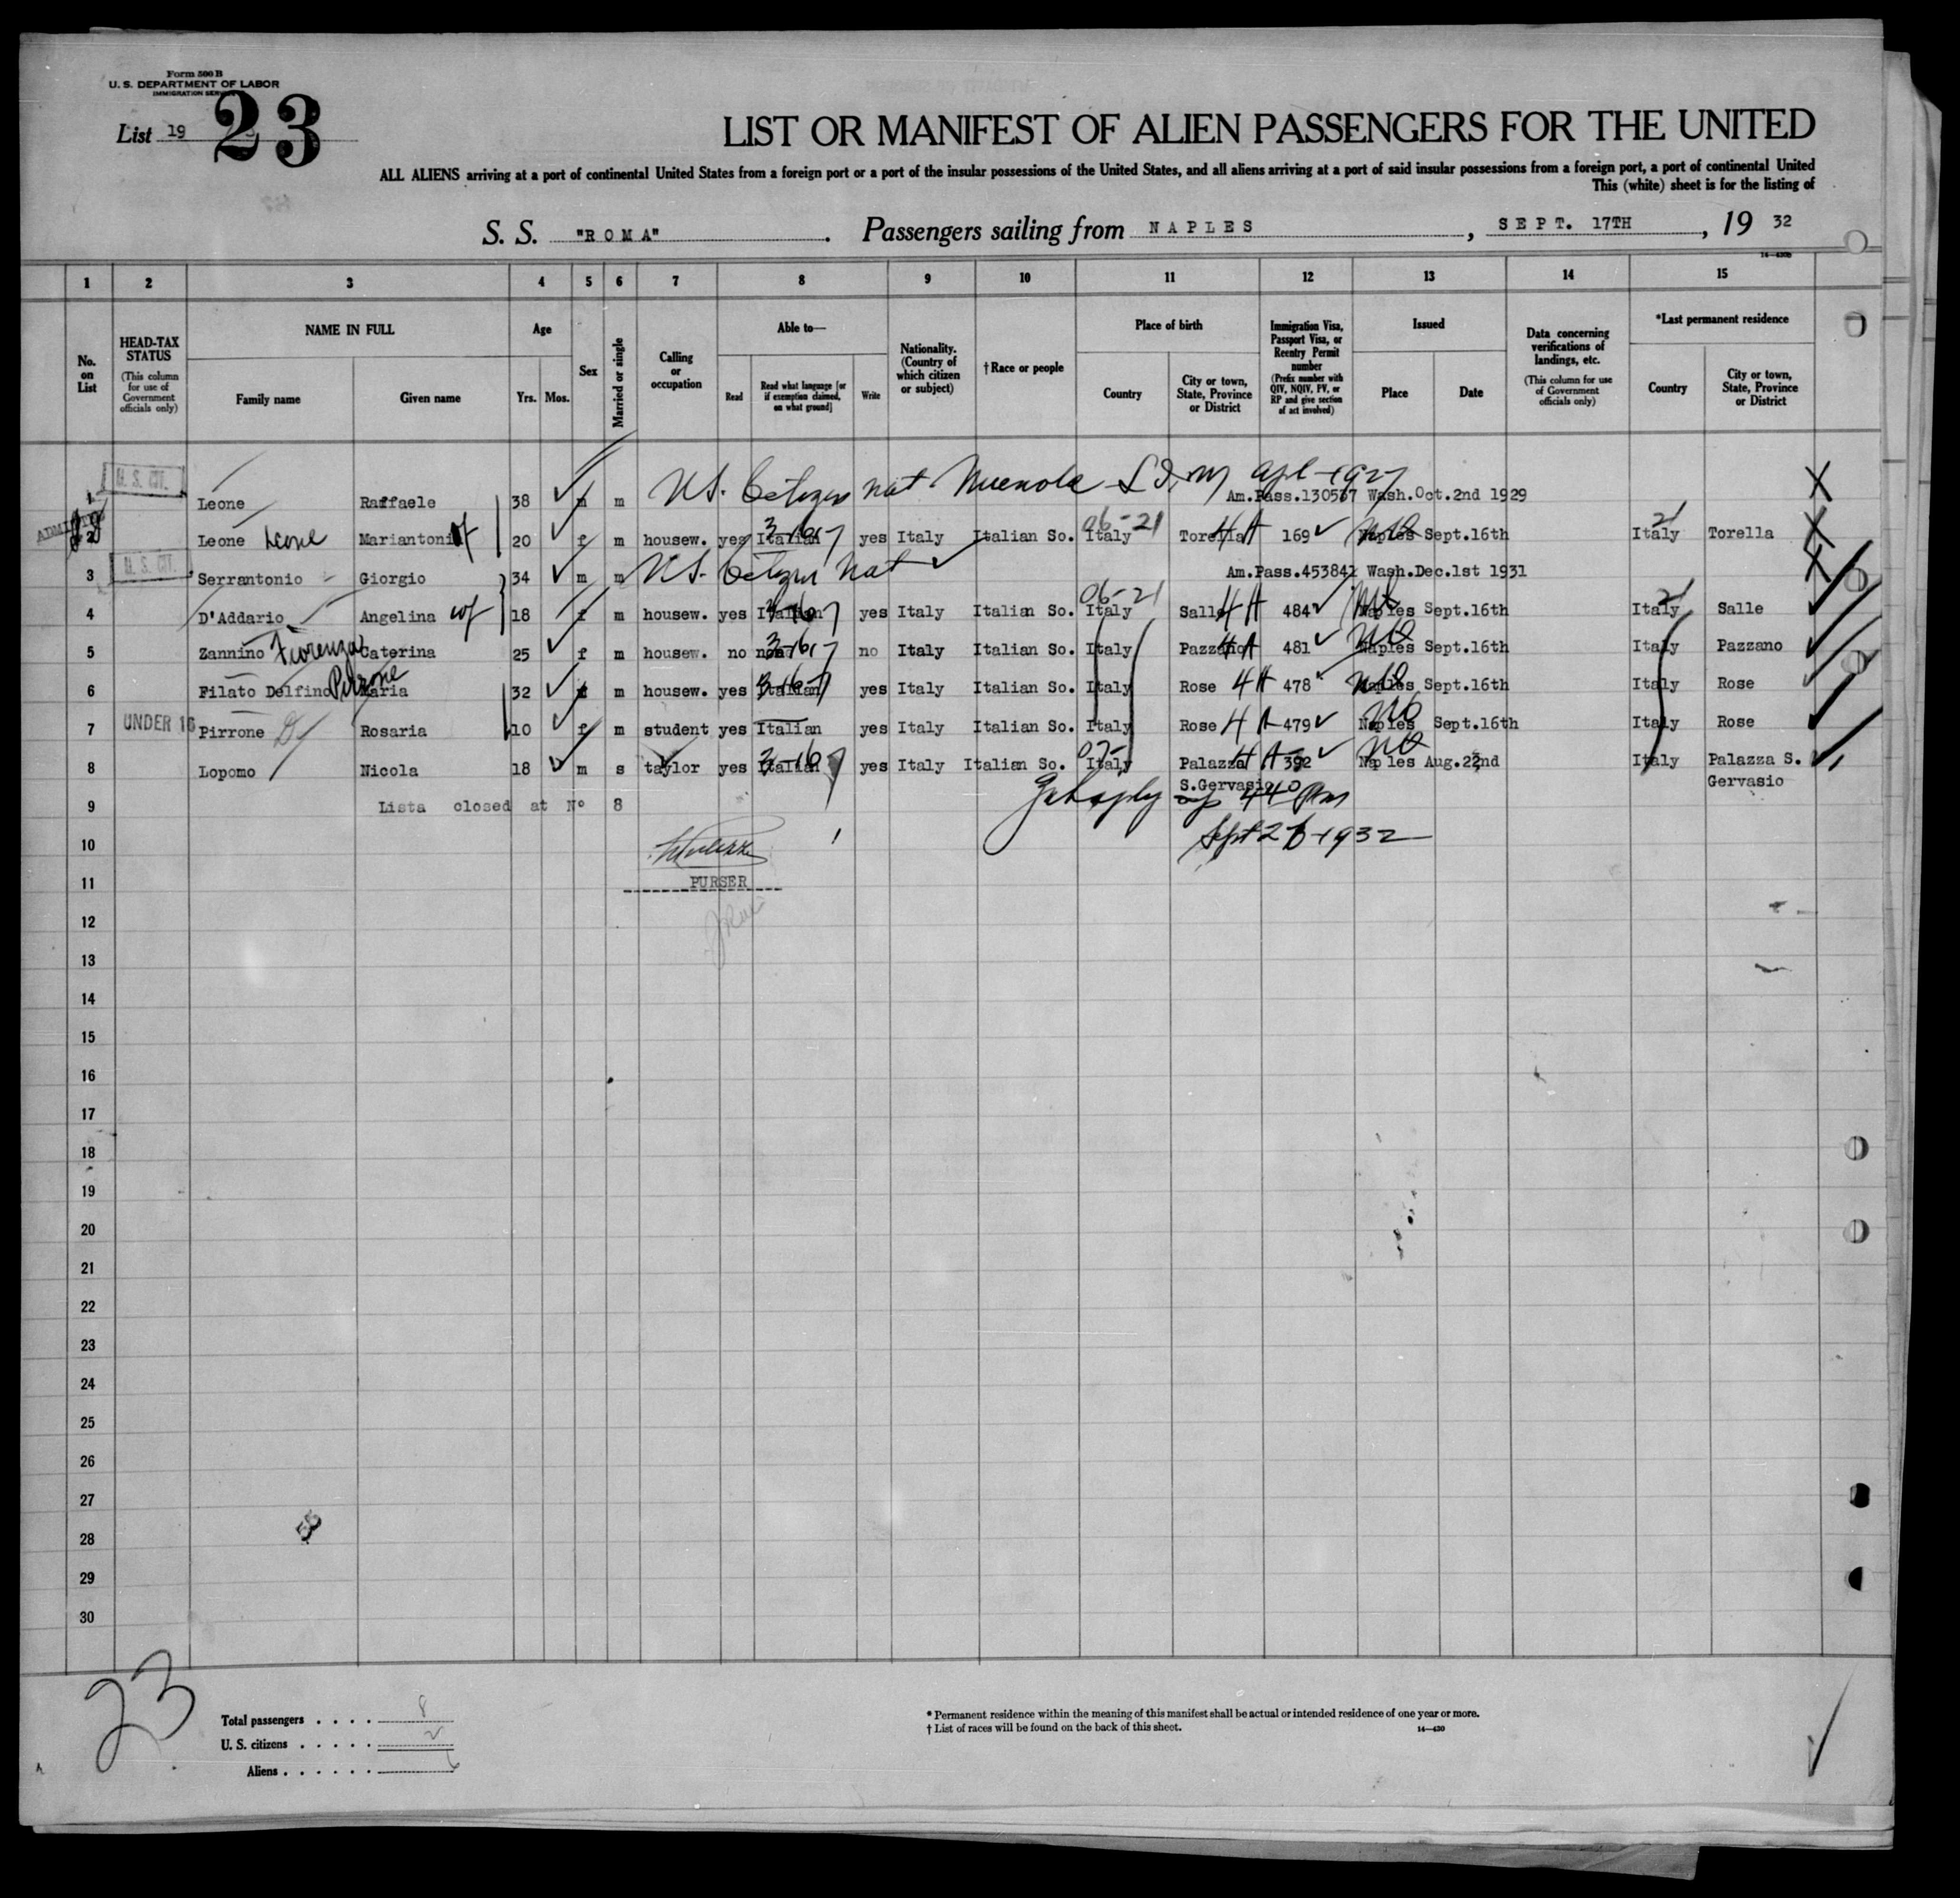 Form 500 B
U. S. DEPARTMENT OF LABOR
IMMIGRATION SERVICE
List 19
23
LIST OR MANIFEST OF ALIEN PASSENGERS FOR THE UNITED
ALL ALIENS arriving at a port of continental United States from a foreign port or a port of the insular possessions of the United States, and all aliens arriving at a port of said insular possessions from a foreign port, a port of continental United
This (white) sheet is for the listing of
S. S. "ROMA". Passengers sailing from NAPLES, SEPT. 17TH, 19 32
1 2 3 4 5 6 7 8 9 10 11 12 13 14 15
No. on List
HEAD-TAX STATUS (This column for use of Government officials only)
NAME IN FULL Family name Given name
Age Yrs. Mos.
Sex
Married or single
Calling or occupation
Able to— Read Read what language [or if exemption claimed, on what ground] Write
Nationality. (Country of which citizen or subject)
†Race or people
Place of birth Country City or town, State, Province or District
Immigration Visa, Passport Visa, or Reentry Permit number (Prefix number with QIV, NQIV, PV, or RP and give section of act involved)
Issued Place Date
Data concerning verifications of landings, etc. (This column for use of Government officials only)
*Last permanent residence Country City or town, State, Province or District
U. S. CIT.
1 Leone Raffaele 38 m m US. Citizen nat Apl-1927 Am.Pass.130567 Wash.Oct.2nd 1929
ADMITTED
2 Leone Leone Mariantonia wf 20 f m housew. yes Italian 3-16-17 yes Italy Italian So. Italy 06-21 Torella 4A 169 Naples Sept.16th Italy 21 Torella
U. S. CIT.
3 Serrantonio Giorgio 34 m m US. Citizen Nat Am.Pass.453841 Wash.Dec.1st 1931
4 D'Addario Angelina wf 18 f m housew. yes Italian yes Italy Italian So. Italy 06-21 Salle 4A 484 Naples Sept.16th Italy 21 Salle
5 Zannino Fiorenza Caterina 25 f m housew. no non no Italy Italian So. Italy Pazzano 4A 481 Naples Sept.16th Italy Pazzano
6 Filato Delfino Pirrone Maria 32 f m housew. yes Italian yes Italy Italian So. Italy Rose 4A 478 Naples Sept.16th Italy Rose
7 UNDER 16 Pirrone Rosaria 10 f m student yes Italian yes Italy Italian So. Italy Rose 4A 479 Naples Sept.16th Italy Rose
8 Lopomo Nicola 18 m s taylor yes Italian yes Italy Italian So. Italy 07- Palazza 4A 392 Naples Aug.22nd Italy Palazza S.
S.Gervasio Gervasio
9 Lista closed at No 8
440 Pm
10 Sept 26-1932
11 PURSER
12
13
14
15
16
17
18
19
20
21
22
23
24
25
26
27
28
29
30
23
Total passengers . . . . 8
U. S. citizens . . . . . 2
Aliens . . . . . . 6
* Permanent residence within the meaning of this manifest shall be actual or intended residence of one year or more.
† List of races will be found on the back of this sheet.
14—430